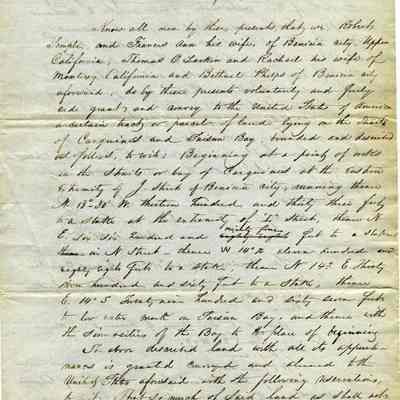 Know all men by these presents that, we Robert
Semple, and Frances Ann his wife, of Benicia city, Upper
California, Thomas O Larkin and Rachael his wife of
Monterey California and Bethuel Phelps of Benicia city
aforesaid, do by these presents voluntarily and freely
cede grant, and convey to the United States of America
a certain tract, or parcel of land lying on the Straits
of Carquines and Suisun Bay; bounded and described
as follows, to wit: Beginning at a point, of rocks
in the Straits or bay of Carquines at the Eastern
extremity of J Street of Benicia city, running thence
N 13° 30' W. thirteen hundred and thirty three feet
to a stake at the extremity of Street, thence N
E. Six hundred and ninety three feet to a stake
in N Street - thence W 14° N eleven hundred and
eighty eight feet to a stake, thence N 14° E thirty
hundred and sixty feet to a stake, thence
E 14° S Twenty nine hundred and sixty seven feet
to low water mark on Suisun Bay, and thence with
the sinuosities of the Bay to the place of beginning
The above described land with all its appurte-
nances is granted conveyed and to the
United States aforesaid, with the following reservations,
to wit, that so much of said land as shall